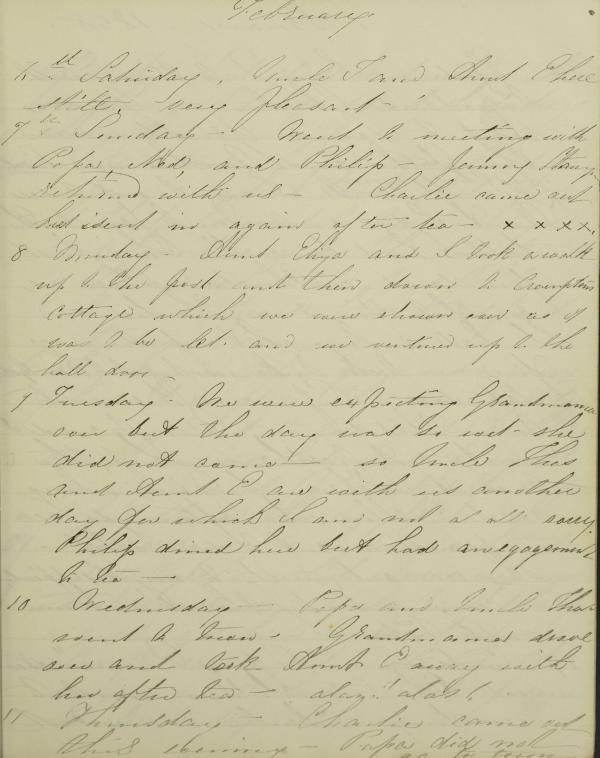 February
6th Saturday, Uncle T and Aunt E here
still, very pleasant -
7th Sunday - Went to meeting with
Papa, Ned, and Philip - Jenny
returned with us - Charlie came out
but went in again after tea - x x x x.
8 Monday - Aunt Eliza and I took a walk
up to the post and then down to
cottage which we were shown over as if
was to be let. and we ventured up to the
hall door -
9 Tuesday - We were expecting Grandmama
over but the day was so wet she
did not come - so Uncle Thos
and Aunt E are with us another
day for which I am not at all sorry.
Philip dined here but had an engagement
to tea -
10 Wednesday - Papa and Uncle Thos
went to town - Grandmama drove
over and took Aunt E away with
her after tea - alas! alas!
11 Thursday - Charlie came out
this evening - Papa did not
go to town